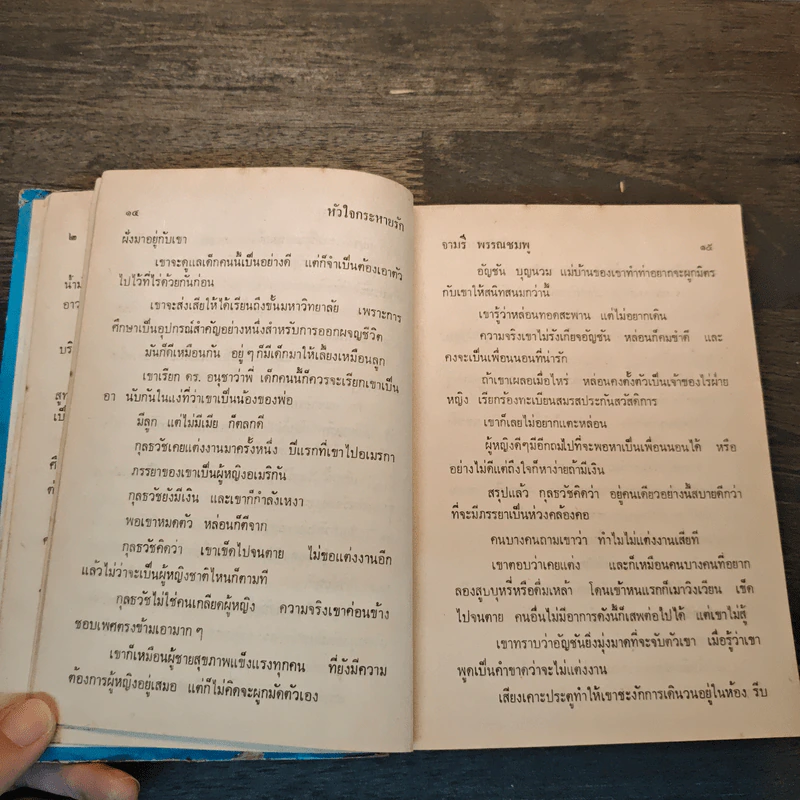 ๒
น้าม
อาว
บริ
สูท
เป็
๑๔
หัวใจกระหายรัก
ฝั่งมาอยู่กับเขา
เขาจะดูแลเด็กคนนี้เป็นอย่างดี แต่ก็จำเป็นต้องเอาตัว
ไปไว้ที่ไร่ด้วยกันก่อน
เขาจะส่งเสียให้ได้เรียนถึงชั้นมหาวิทยาลัย เพราะการ
ศึกษาเป็นอุปกรณ์สำคัญอย่างหนึ่งสำหรับการออกผจญชีวิต
มันก็ดีเหมือนกัน อยู่ ๆ ก็มีเด็กมาให้เลี้ยงเหมือนลูก
เขาเรียก ดร. อนุชาว่าพี่ เด็กคนนี้ก็ควรจะเรียกเขาเป็น
อา นับกันในแง่ที่ว่าเขาเป็นน้องของพ่อ
มีลูก แต่ไม่มีเมีย ก็ตลกดี
กุลธวัชเคยแต่งงานมาครั้งหนึ่ง ปีแรกที่เขาไปอเมรกา
ภรรยาของเขาเป็นผู้หญิงอเมริกัน
กุลธวัชยังมีเงิน และเขาก็กำลังเหงา
พอเขาหมดตัว หล่อนก็ตีจาก
กุลธวัชคิดว่า เขาเข็ดไปจนตาย ไม่ขอแต่งงานอีก
แล้วไม่ว่าจะเป็นผู้หญิงชาติไหนก็ตามที
กุลธวัชไม่ใช่คนเกลียดผู้หญิง ความจริงเขาค่อนข้าง
ชอบเพศตรงข้ามเอามาก ๆ
เขาก็เหมือนผู้ชายสุขภาพแข็งแรงทุกคน ที่ยังมีความ
ต้องการผู้หญิงอยู่เสมอ แต่ก็ไม่คิดจะผูกมัดตัวเอง
จามรี พรรณชมพู
๑๕
อัญชัน บุญนวม แม่บ้านของเขาทำท่าอยากจะผูกมิตร
กับเขาให้สนิทสนมกว่านี้
เขารู้ว่าหล่อนทอดสะพาน แต่ไม่อยากเดิน
ความจริงเขาไม่รังเกียจอัญชัน หล่อนก็คมขำดี และ
คงจะเป็นเพื่อนนอนที่น่ารัก
ถ้าเขาเผลอเมื่อไหร่ หล่อนคงตั้งตัวเป็นเจ้าของไร่ฝ่าย
หญิง เรียกร้องทะเบียนสมรสประกันสวัสดิการ
เขาก็เลยไม่อยากแตะหล่อน
ผู้หญิงดีๆมีอีกถมไปที่จะพอหาเป็นเพื่อนนอนได้ หรือ
อย่างไม่ดีแต่ถึงใจก็หาง่ายถ้ามีเงิน
สรุปแล้ว กุลธวัชคิดว่า อยู่คนเดียวอย่างนี้สบายดีกว่า
ที่จะมีภรรยาเป็นห่วงคล้องคอ
คนบางคนถามเขาว่า ทำไมไม่แต่งงานเสียที
เขาตอบว่าเคยแต่ง และก็เหมือนคนบางคนที่อยาก
ลองสูบบุหรี่หรือดื่มเหล้า โดนเข้าหนแรกก็เมาวิงเวียน เข็ด
ไปจนตาย คนอื่นไม่มีอาการดังนี้ก็เสพต่อไปได้ แต่เขาไม่สู้
เขาทราบว่าอัญชันยิ่งมุ่งมาดที่จะจับตัวเขา เมื่อรู้ว่าเขา
พูดเป็นคำขาดว่าจะไม่แต่งงาน
เสียงเคาะประตูทำให้เขาชะงักการเดินวนอยู่ในห้อง รีบ